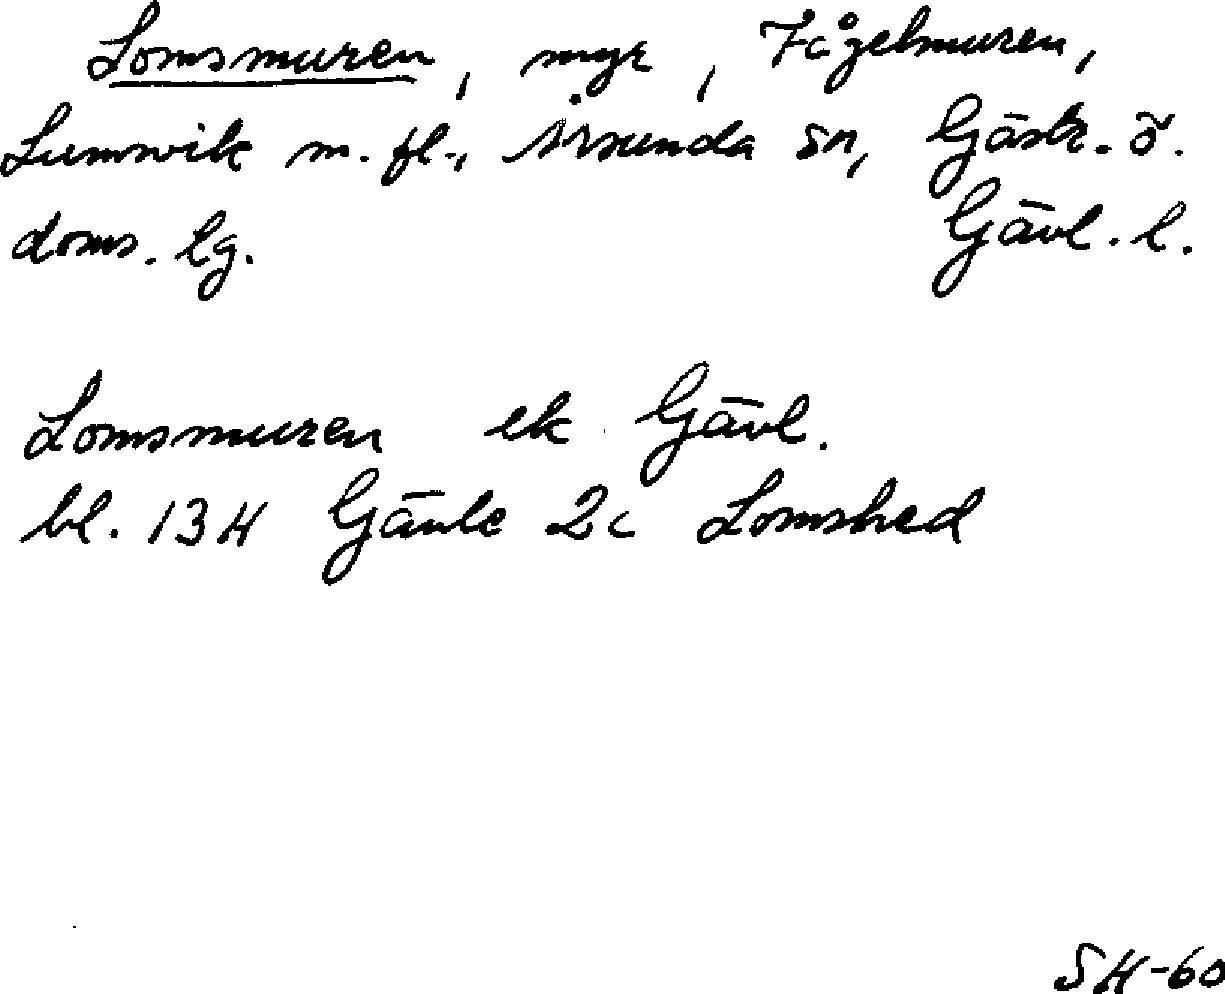 Lomsmuren, myr, Fågelmuren,
Lumsvik m.fl., Årsunda sn, Gästr. ö.
doms. lg. Gävl. l.
Lomsmuren ek Gävl.
bl. 13H Gävle 2c Lomshed
SH-60